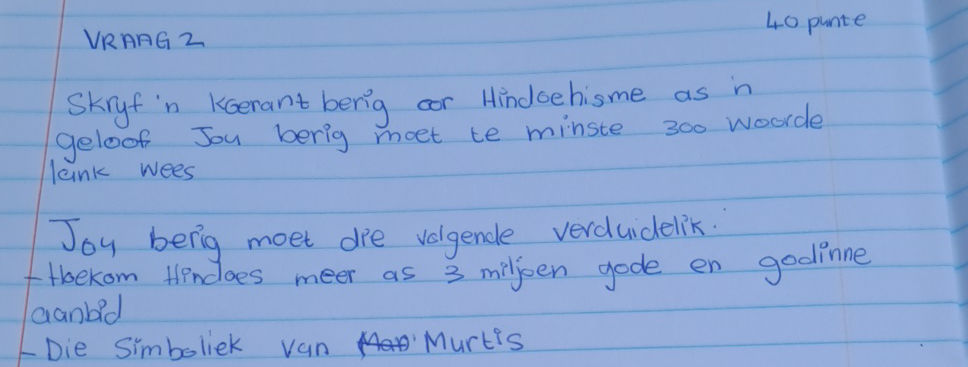 40 punte
VRAAG 2
Skryf 'n Koerant berig oor Hindoehisme as 'n
geloof Jou berig moet te minste 300 woorde
lank wees
Jou berig moet die volgende verduidelik:
- Hoekom Hindoes meer as 3 miljoen gode en godinne
aanbid
- Die Simboliek van Murtis